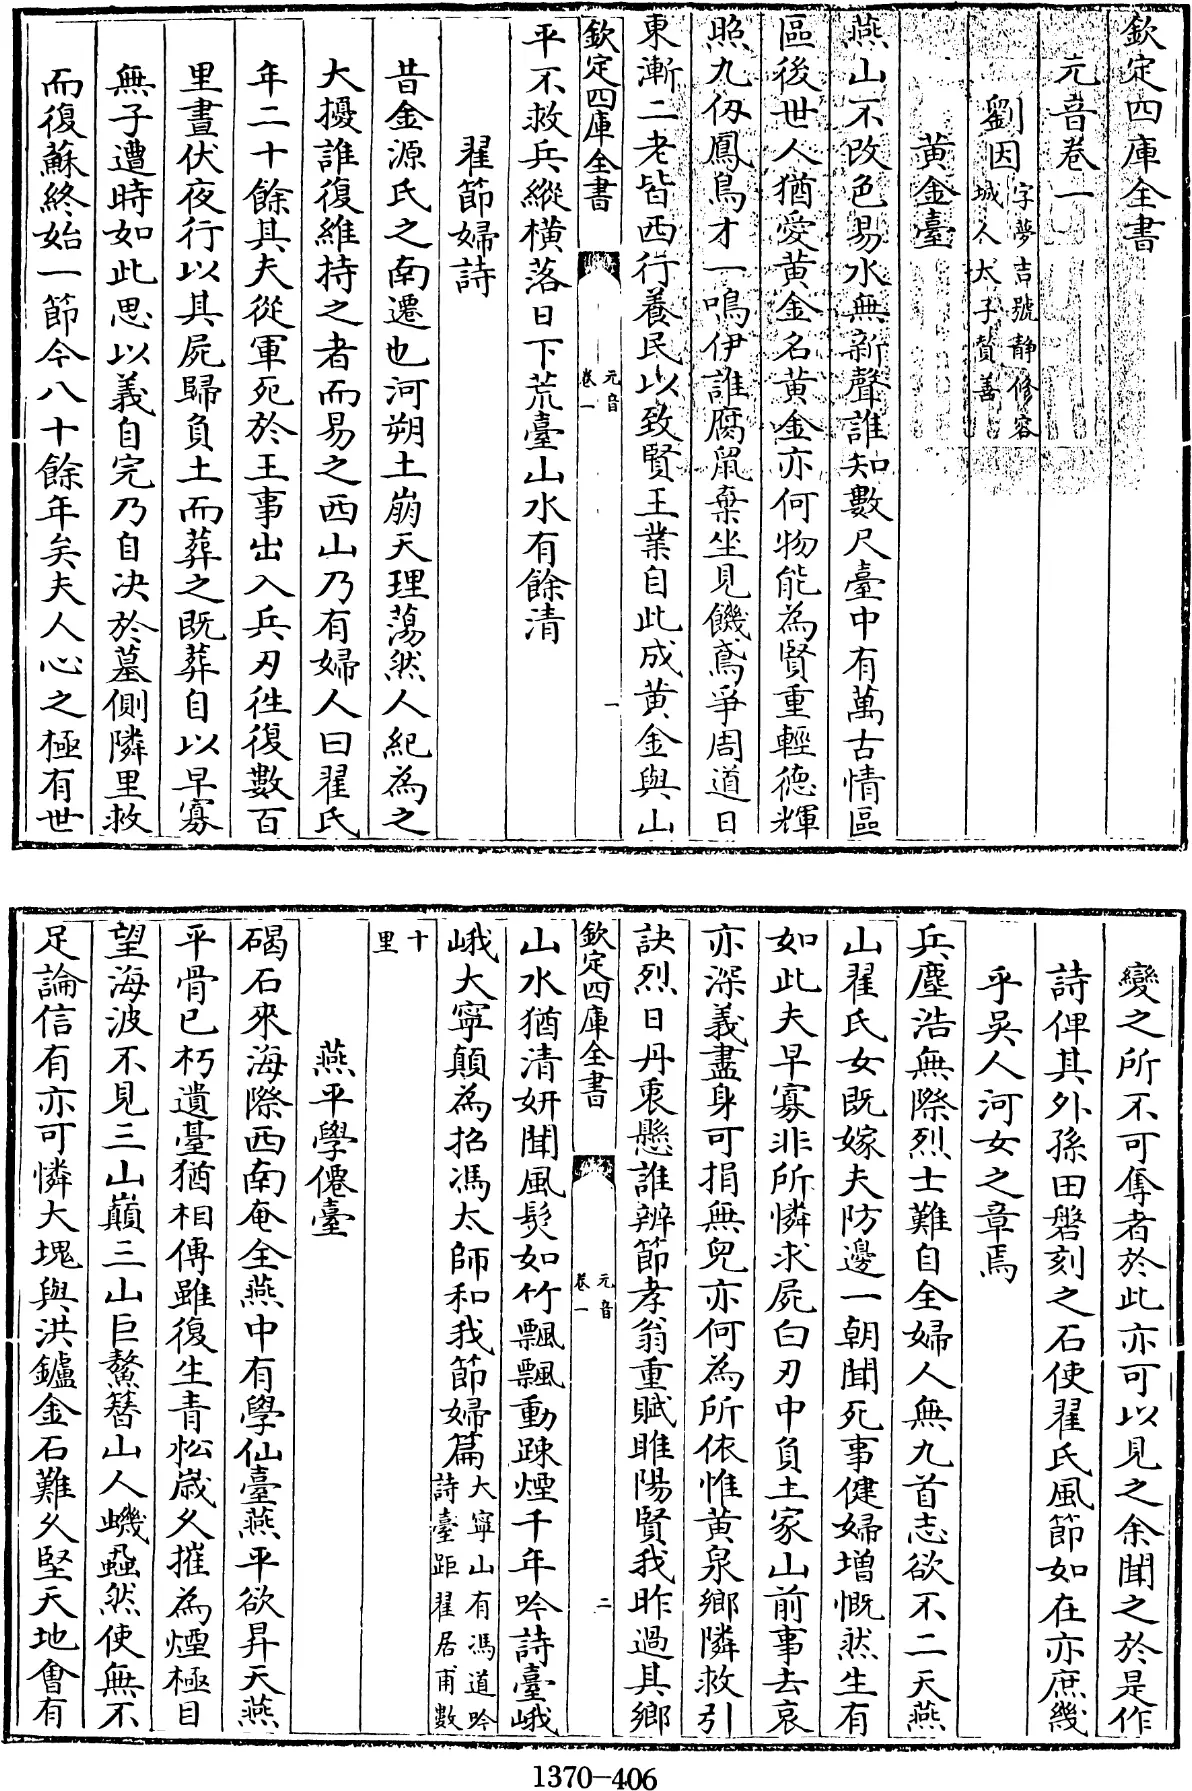 欽定四庫全書
元音卷一
劉因字夢吉號靜修容城人太子贊善
黃金臺
燕山不改色易水無新聲誰知數尺臺中有萬古情區
區後世人猶愛黃金名黃金亦何物能為賢重輕德輝
照九仭鳳鳥才一鳴伊誰腐鼠棄坐見饑鳶爭周道日
東漸二老皆西行養民以致賢王業自此成黃金與山
欽定四庫全書
元音
卷一
一
平不救兵縱橫落日下荒臺山水有餘清
翟節婦詩
昔金源氏之南遷也河朔土崩天理蕩然人紀為之
大擾誰復維持之者而易之西山乃有婦人曰翟氏
年二十餘其夫從軍死於王事出入兵刃徃復數百
里晝伏夜行以其屍歸負土而葬之既葬自以早寡
無子遭時如此思以義自完乃自决於墓側隣里救
而復蘇終始一節今八十餘年矣夫人心之極有世
變之所不可奪者於此亦可以見之余聞之於是作
詩俾其外孫田磐刻之石使翟氏風節如在亦庶幾
乎吳人河女之章焉
兵塵浩無際烈士難自全婦人無九首志欲不二天燕
山翟氏女既嫁夫防邊一朝聞死事健婦增慨然生有
如此夫早寡非所憐求屍白刃中負土家山前事去哀
亦深義盡身可捐無兒亦何為所依惟黃泉鄉隣救引
訣烈日丹衷懸誰辨節孝翁重賦睢陽賢我昨過其鄉
欽定四庫全書
元音
卷一
二
山水猶清妍聞風髮如竹飄飄動踈煙千年吟詩臺峨
峨大寧顛為招馮太師和我節婦篇大寧山有馮道吟詩臺距翟居甫數
十里
燕平學僊臺
碣石來海際西南奄全燕中有學仙臺燕平欲昇天燕
平骨已朽遺臺猶相傳雖復生青松歲久摧為煙極目
望海波不見三山巔三山巨鰲簪山人蟣蝨然使無不
足論信有亦可憐大塊與洪鑪金石難久堅天地會有
1370-406